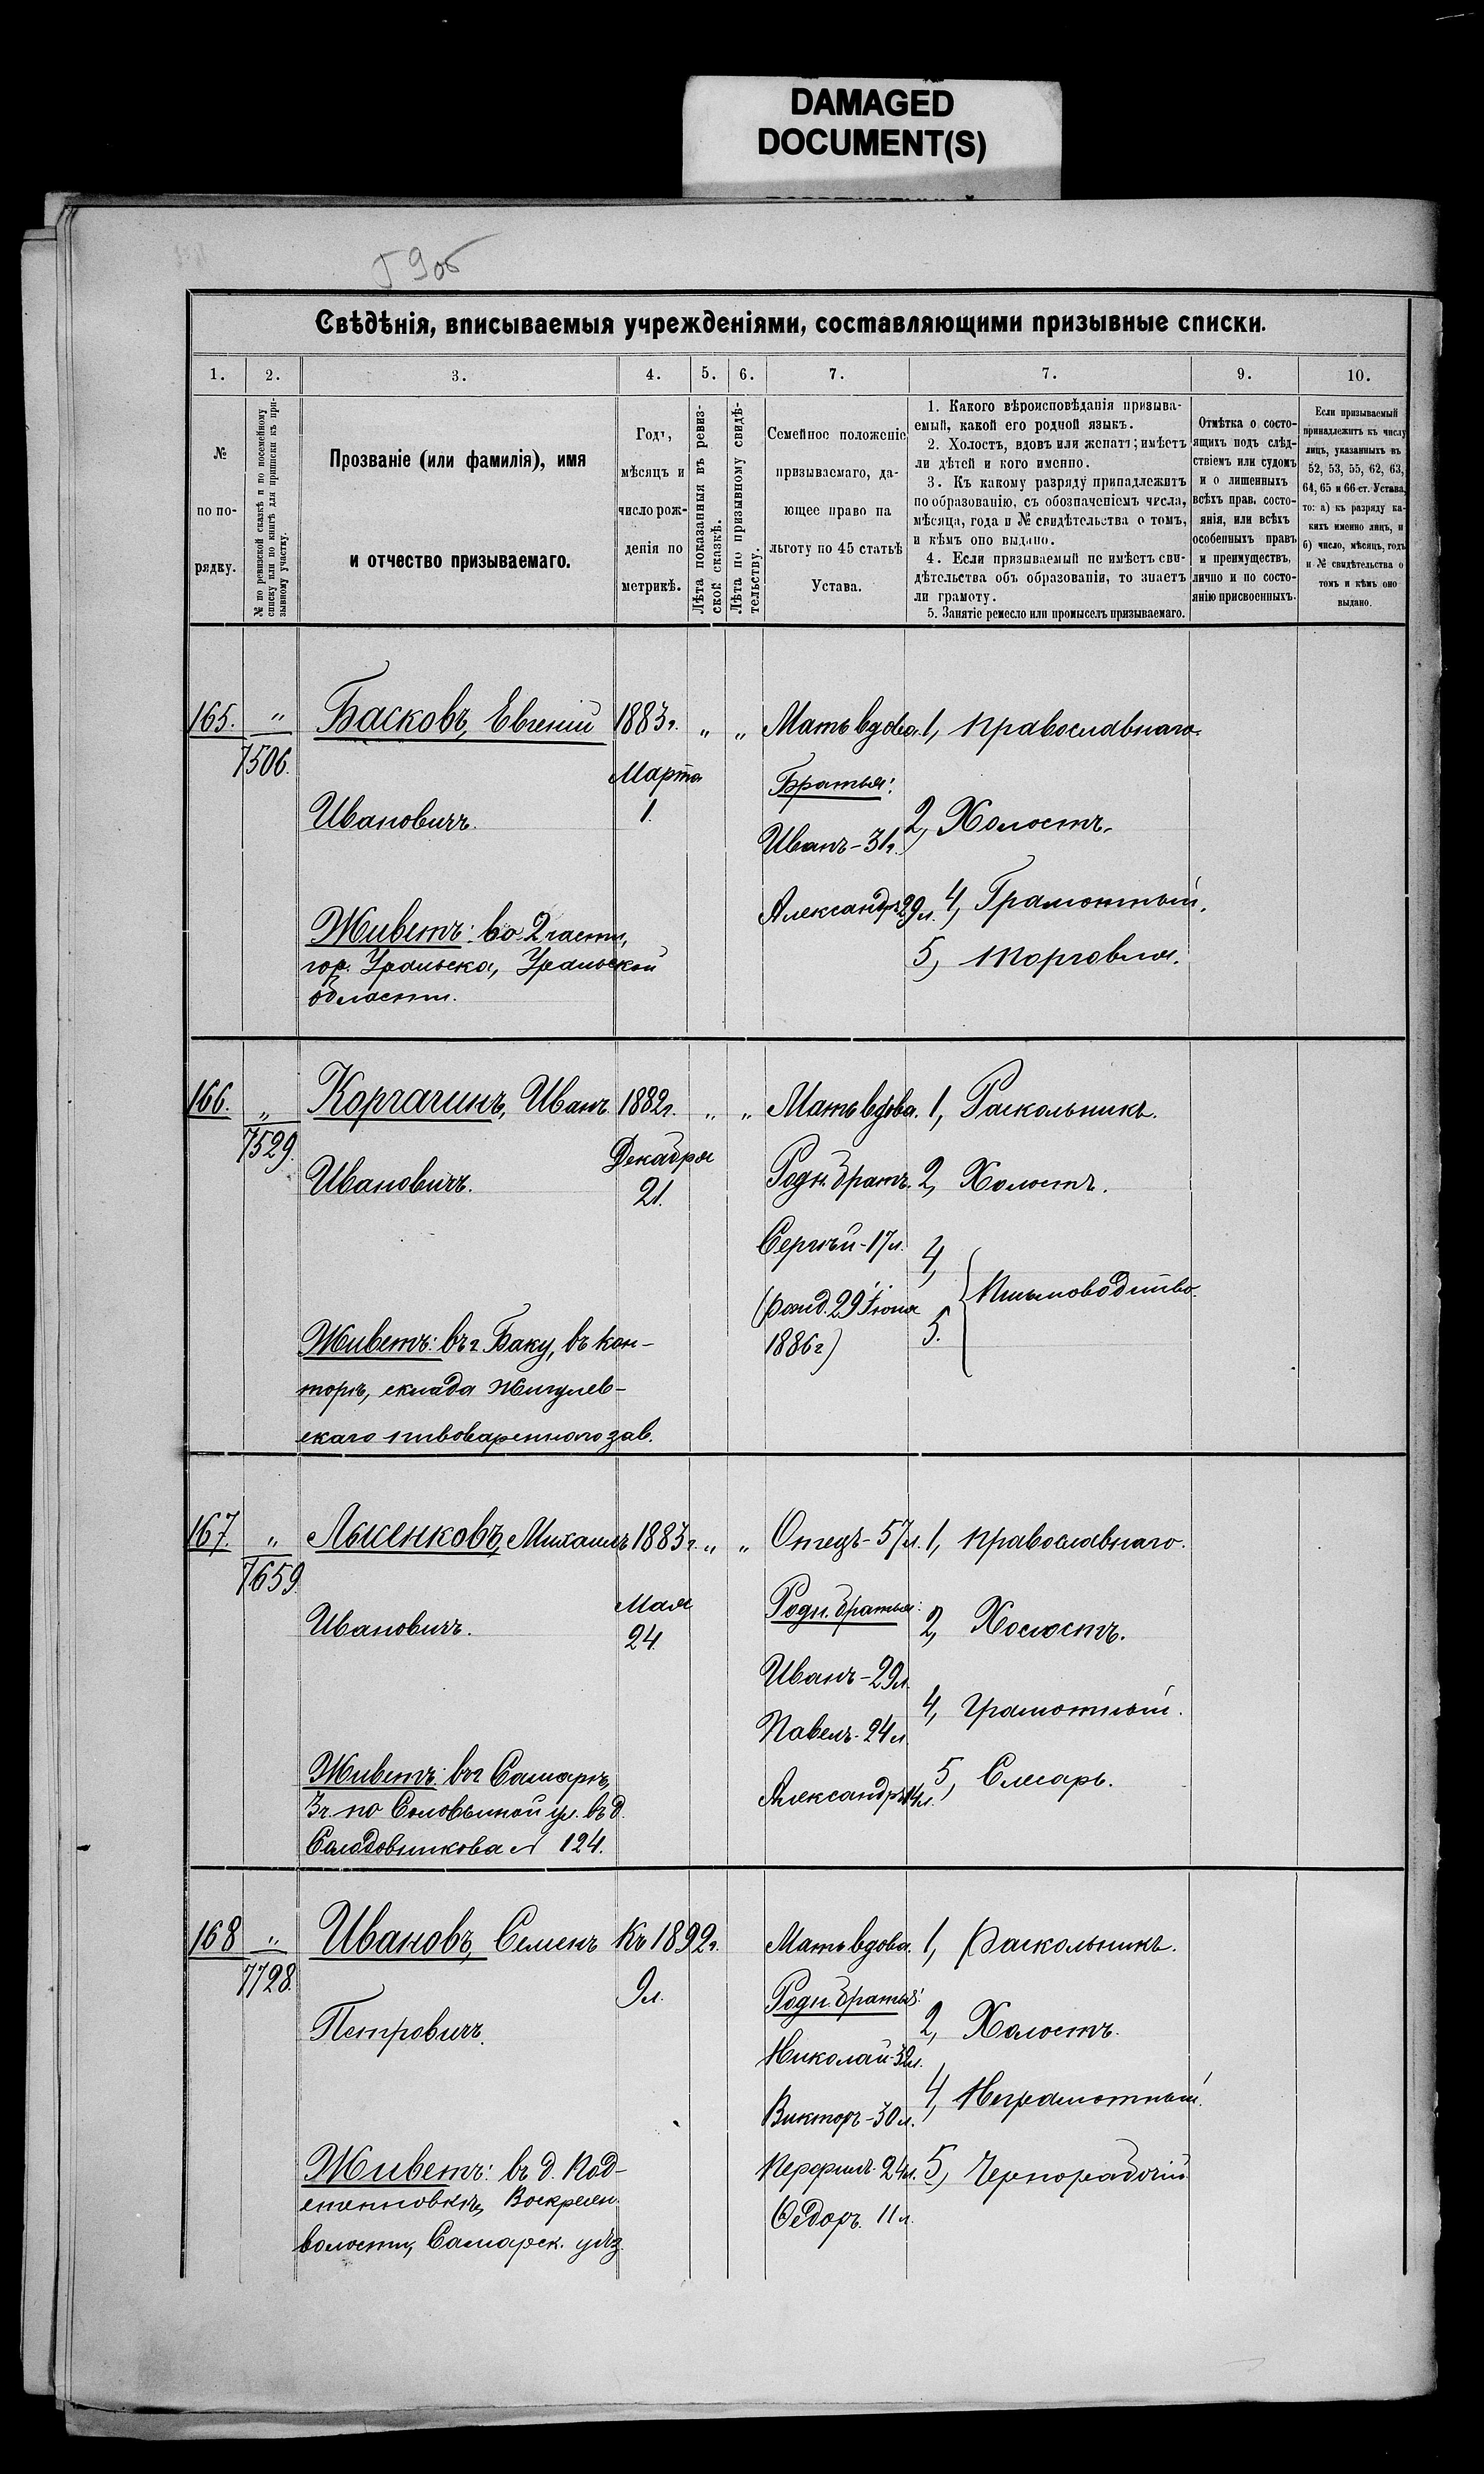 DAMAGED
DOCUMENT(S)
59об
Свѣдѣнія, вписываемыя учрежденіями, составляющими призывные списки.
1. 2. 3. 4. 5. 6. 7. 7. 9. 10.
№
по по-
рядку.
№ по ревизской сказкѣ и по посемейному
списку или по книгѣ для приписки къ при-
зывному участку.
Прозваніе (или фамилія), имя
и отчество призываемаго.
Годъ,
мѣсяцъ и
число рож-
денія по
метрикѣ.
Лѣта показанныя въ ревиз-
ской сказкѣ.
Лѣта по призывному свидѣ-
тельству.
Семейное положеніе
призываемаго, да-
ющее право на
льготу по 45 статьѣ
Устава.
1. Какого вѣроисповѣданія призыва-
емый, какой его родной языкъ.
2. Холостъ, вдовъ или женатъ; имѣетъ
ли дѣтей и кого именно.
3. Къ какому разряду принадлежитъ
по образованію, съ обозначеніемъ числа,
мѣсяца, года и № свидѣтельства о томъ,
и кѣмъ оно выдано.
4. Если призываемый не имѣетъ сви-
дѣтельства объ образованіи, то знаетъ
ли грамоту.
5. Занятіе ремесло или промыселъ призываемаго.
Отмѣтка о состо-
ящихъ подъ слѣд-
ствіемъ или судомъ
и о лишенныхъ
всѣхъ прав. состо-
янія, или всѣхъ
особенныхъ правъ
и преимуществъ,
лично и по состо-
янію присвоенныхъ.
Если призываемый
принадлежитъ къ числу
лицъ, указанныхъ въ
52, 53, 55, 62, 63,
64, 65 и 66 ст. Устава,
то: а) къ разряду ка-
кихъ именно лицъ, и
б) число, мѣсяцъ, годъ
и № свидѣтельства о
томъ и кѣмъ оно
выдано.
165. „ Басковъ, Евгеній 1883г. „ „ Мать вдова. 1, Православнаго.
7506. Марта Братья:
Ивановичъ. 1. Иванъ - 31г. 2, Холостъ.
Живетъ: во 2 части, Александръ 29л. 4, Грамотный.
гор. Уральска, Уральской 5, Торговля.
области.
166. „ Корчагинъ, Иванъ 1882г. „ „ Мать вдова. 1, Раскольникъ.
7529. Декабря
Ивановичъ. 21. Родн. братъ. 2, Холостъ.
Сергѣй - 17л. 4,
(рожд. 29 Іюня Письмоводство.
Живетъ: въ г. Баку, въ кон- 1886г) 5.
торѣ, склада Жигулев-
скаго пивовареннаго зав.
167. „ Лыченковъ, Михаилъ 1883г. „ „ Отецъ - 57л. 1, Православнаго.
7659. Мая Родн. братья:
Ивановичъ. 24. 2, Холостъ.
Иванъ - 29л.
Павелъ - 24л. 4, Грамотный.
Живетъ: въ г. Самарѣ, Александръ 14л. 5, Слесарь.
3ч. по Соловьиной ул. въ д.
Солодовникова № 124.
168 „ Ивановъ, Семенъ Къ 1892г. Мать вдова. 1, Раскольникъ.
7728. 9л. Родн. братья:
Петровичъ. 2, Холостъ.
Николай - 32л.
Викторъ - 30л. 4, Неграмотный.
Живетъ: въ д. Под- Перфилъ - 24л. 5, Чернорабочій
степновкѣ, Воскресен. Ѳедоръ. 11л.
волости, Самарск. уѣз.